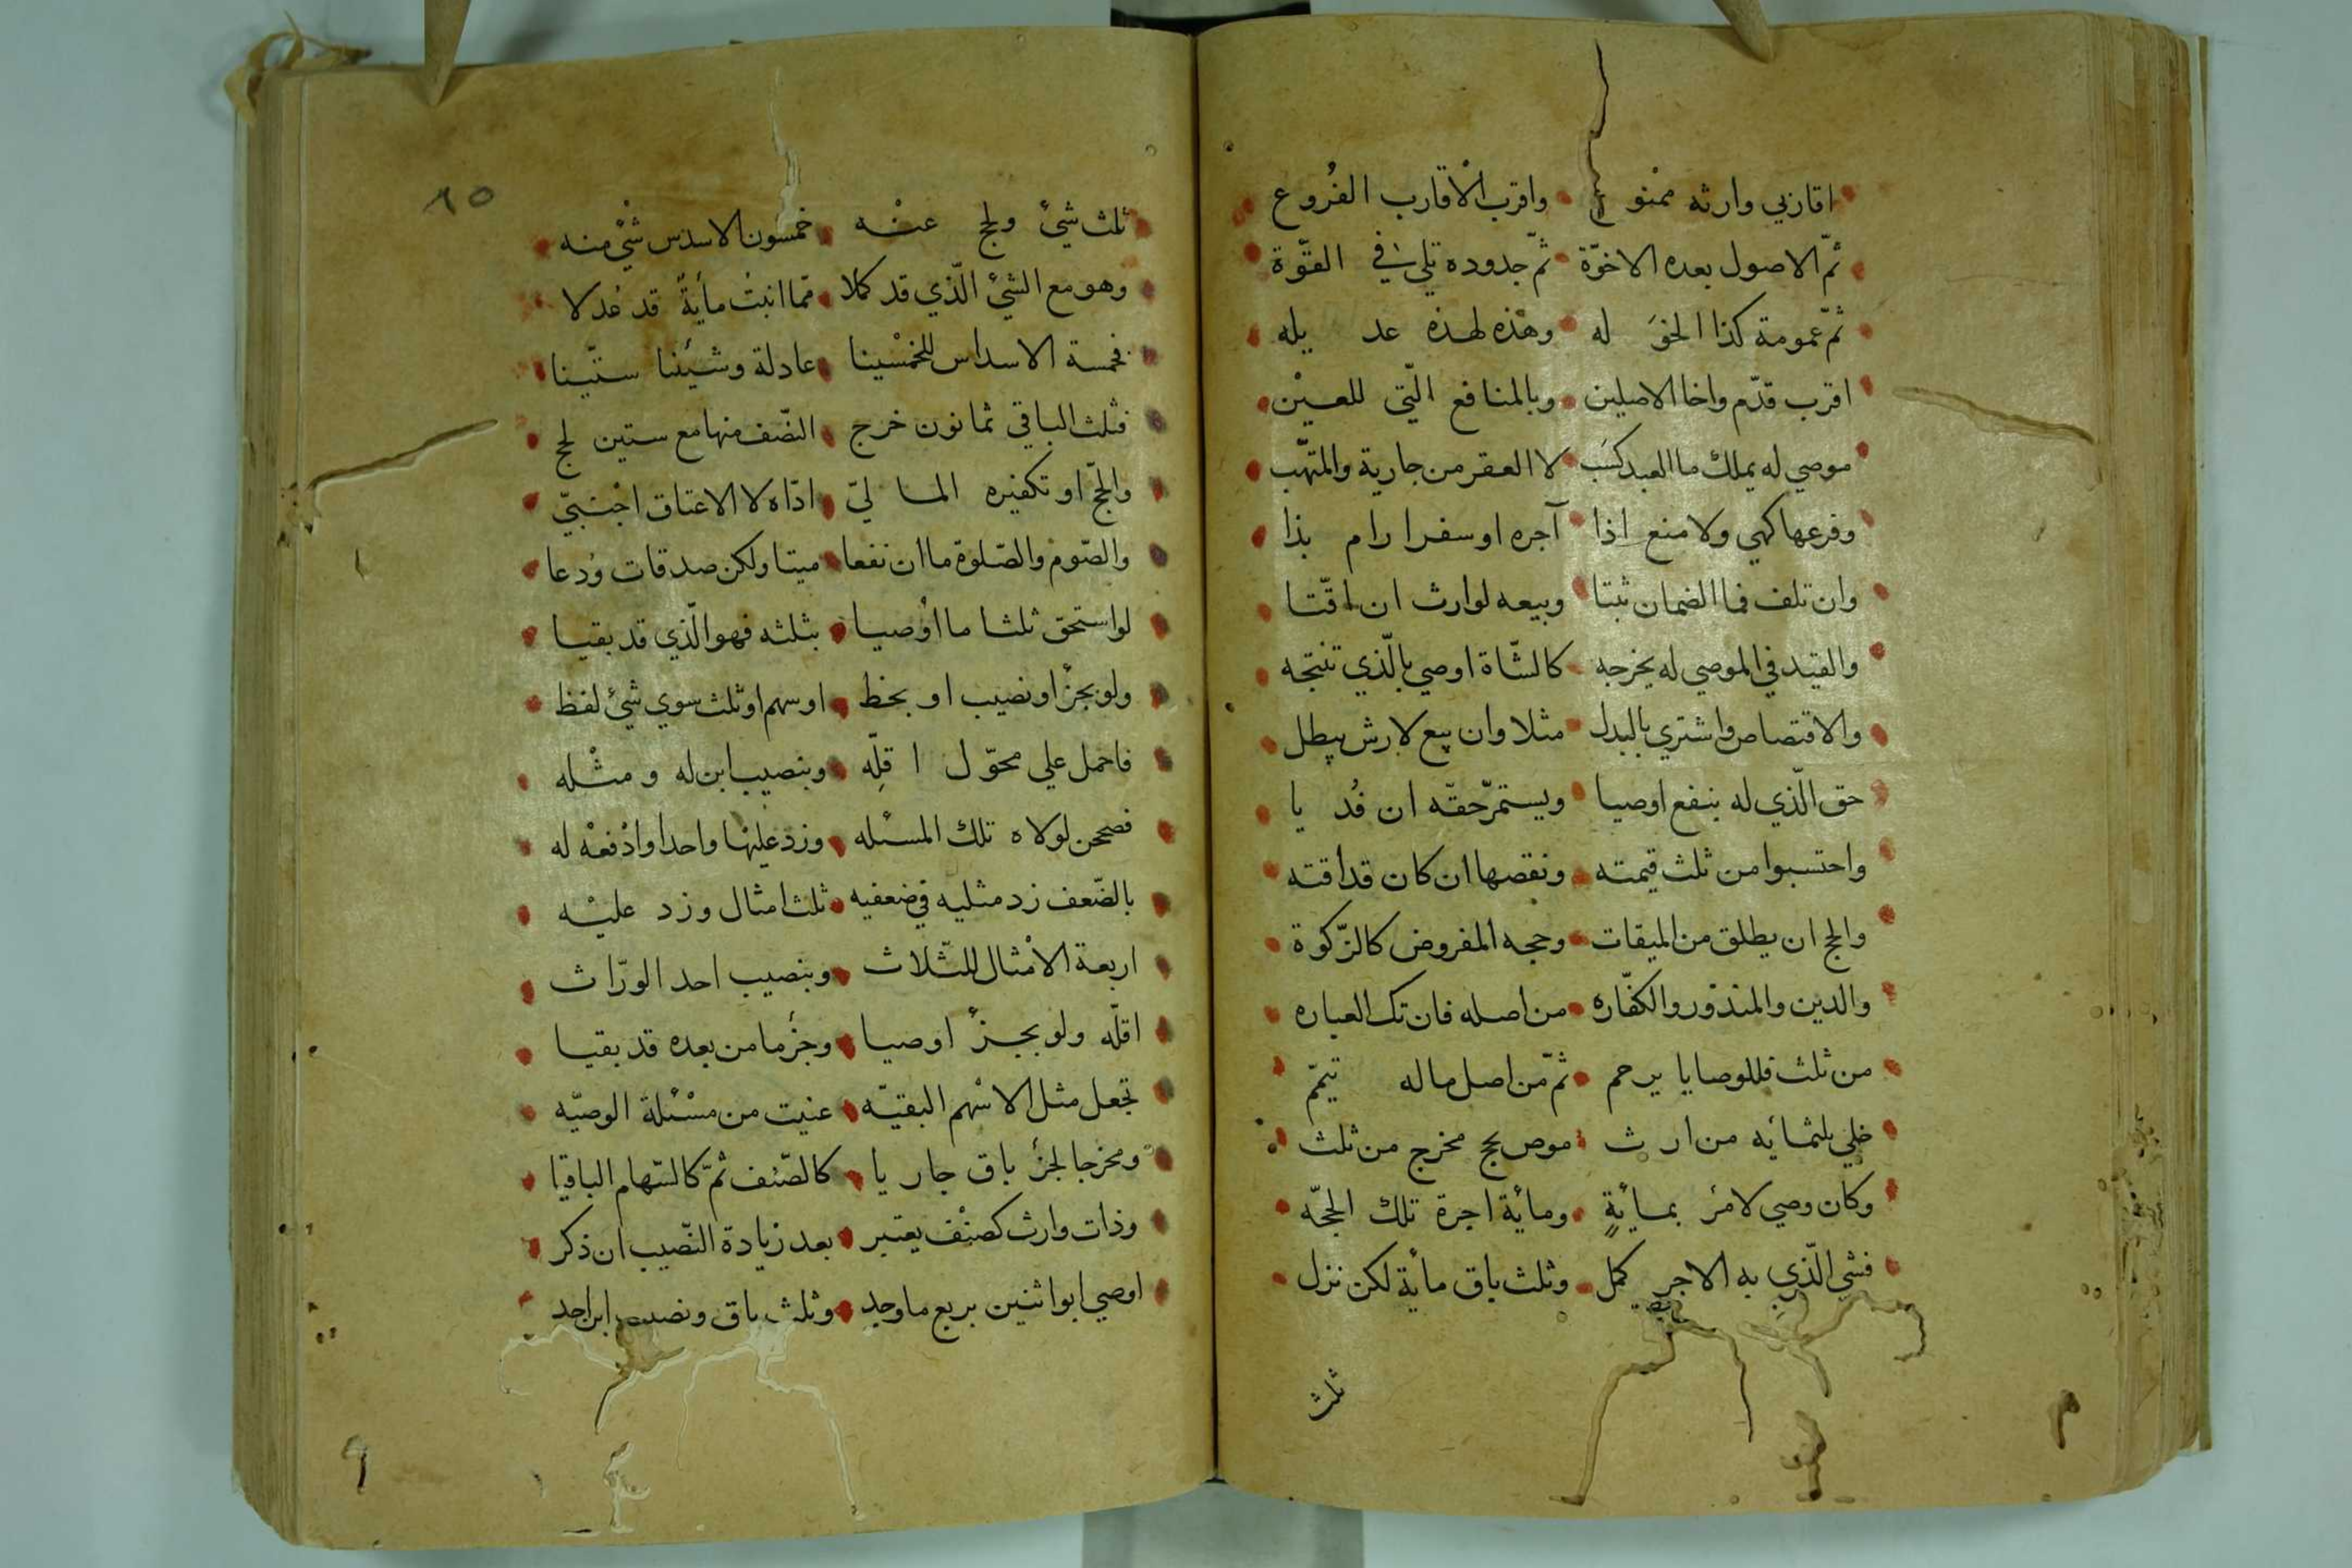 اقاربي وارثه ممنوع واقرب الاقارب الفروع
ثم الاصول بعده الاخوة ثم جدوده تلي في القوة
ثم عمومة كذا الخؤ له وهذه لهذه عد يله
اقرب قدم واخا الاصلين وبالمنافع التي للعين
موصي له يملك ما العبد كسب لا العقر من جارية والمتهب
وفرعها كهي ولا منع اذا آجره او سفرا رام بذا
وان تلف فما الضمان ثبتا وبيعه لوارث ان اقتا
والقيد في الموصي له يخرجه كالشاة اوصي بالذي تنتجه
والاقتصاص واشتري بالبدل مثلا وان بيع لارش يبطل
حق الذي له بنفع اوصيا ويستمر حقه ان فد يا
واحتسبوا من ثلث قيمته ونقصها ان كان قد اقته
والحج ان يطلق من الميقات وحجه المفروض كالزكوة
والدين والمنذور والكفاره من اصله فان تك العباره
من ثلث فللوصايا يرحم ثم من اصل ماله تيمم
خلي بلثمائه من ار ث موص بحج مخرج من ثلث
وكان وصي لامرء بمائة ومائة اجرة تلك الحجه
فشي الذي به الاجر كمل وثلث باق مائة لكن نزل
ثلث
٦٥
ثلث شيئ ولحج عنه خمسون الا سدس شيئ منه
وهو مع الشيئ الذي قد كملا مما انبت مائة قد عدلا
فخمسة الاسداس للخمسينا عادلة وشيئنا ستينا
فثلث الباقي ثمانون خرج النصف منها مع ستين لحج
والحج او تكفيره المالي اداه لا الاعتاق اجنبي
والصوم والصلوة ما ان نفعا ميتا ولكن صدقات ودعا
لو استحق ثلثا ما اوصيا بثلثه فهو الذي قد بقيا
ولو بجزء او نصيب او بحظ او سهم او ثلث سوي شيئ لفظ
فاحمل علي محول اقله وبنصيب ابن له ومثله
فصححن لولاه تلك المسئله وزد عليها واحدا وادفعه له
بالضعف زد مثليه في ضعفيه ثلث امثال وزد عليه
اربعة الامثال للثلاث وبنصيب احد الوراث
اقله ولو بجزء اوصيا وجزء ما من بعده قد بقيا
تجعل مثل الاسهم البقيه عنيت من مسئلة الوصيه
ومخرجا لجزء باق جاريا كالصنف ثم كالسهام الباقيا
وذات وارث كصنف يعتبر بعد زيادة النصيب ان ذكر
اوصي ابو اثنين بربع ما وجد وثلث باق ونصيب ابن احد